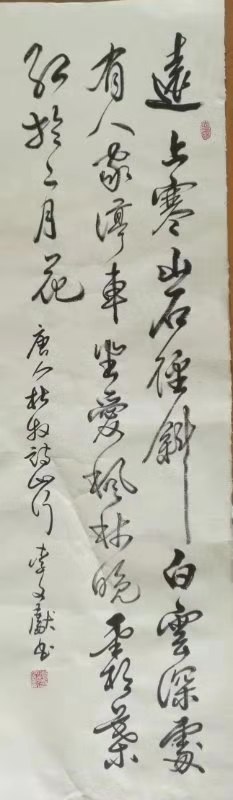 遠上寒山石徑斜白雲深處
有人家停車坐愛楓林晚霜葉
紅於二月花 唐人杜牧詩山行 李文獻書